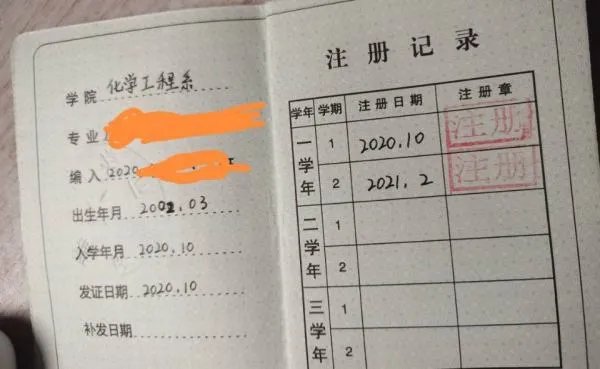 学院 化学工程系
专业
编入 2020.
出生年月 2002.03
入学年月 2020.10
发证日期 2020.10
补发日期
注册记录
学年 学期 注册日期 注册章
一学年 1 2020.10 注册
2 2021.2 注册
二学年 1
2
三学年 1
2